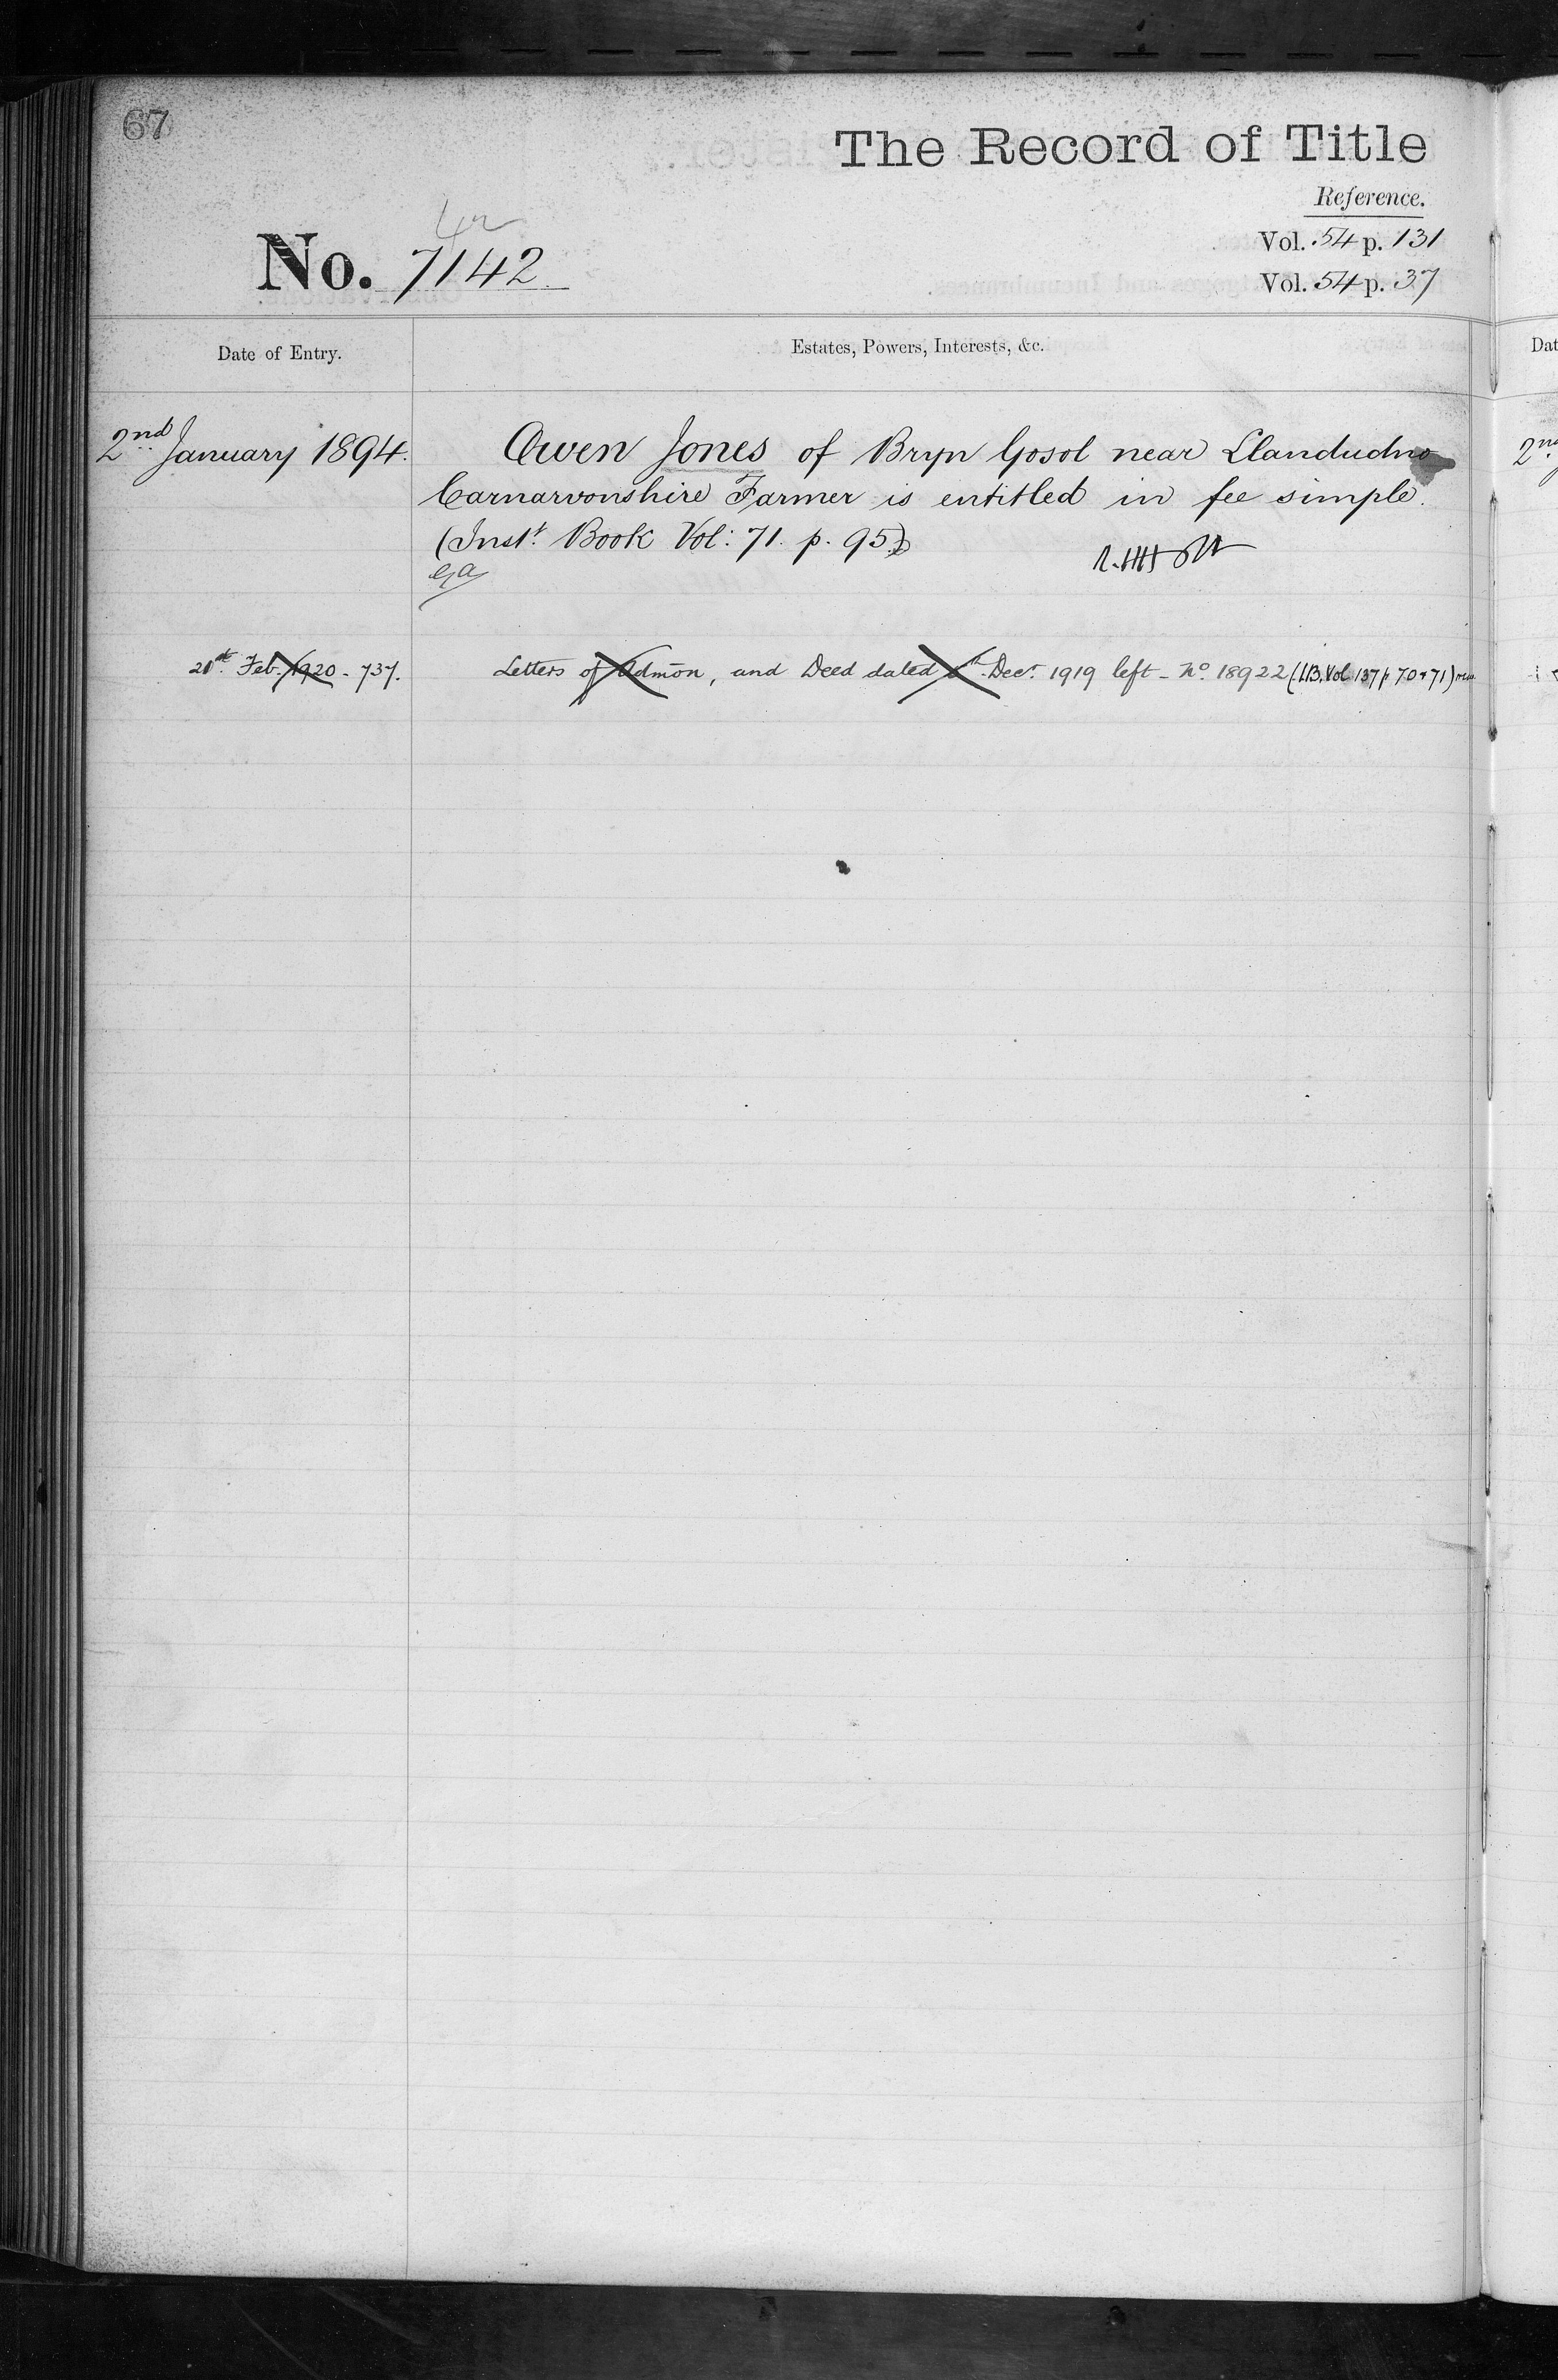 67
The Record of Title
Reference.
No. 7142
Vol. 54 p. 131
Vol. 54 p. 37
Date of Entry.
Estates, Powers, Interests, &c.
Dat
2nd January 1894.
Owen Jones of Bryn Gosol near Llandudno
2nd
Carnarvonshire Farmer is entitled in fee simple.
(Inst. Book Vol: 71. p. 95)
21st Feb. 1920 - 737.
Letters of Admon, and Deed dated Decr. 1919 left - No. 18922 (I.B. Vol 137 p 70 & 71)